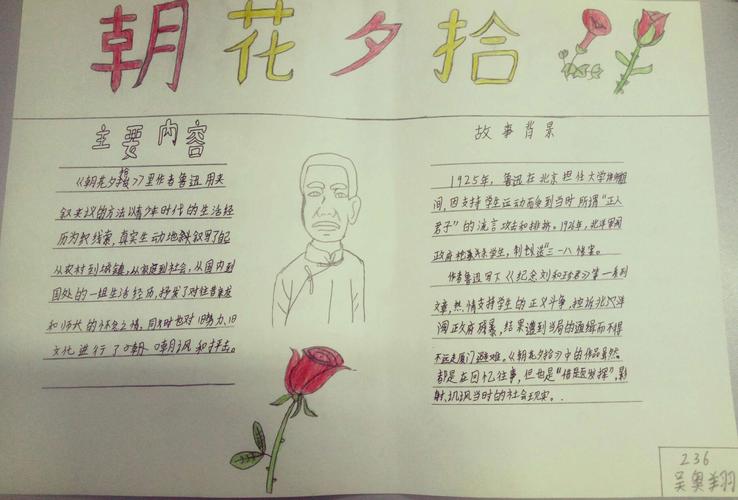 朝花夕拾
主要内容
《朝花夕拾》里作者鲁迅用夹
叙夹议的方法以青少年时代的生活经
历为线索,真实生动地叙写了自己
从农村到城镇,从家庭到社会,从国内到
国外的一组生活经历,抒发了对往昔亲友
和师长的怀念之情,同时也对旧势力、旧
文化进行了嘲讽和抨击。
故事背景
1925年,鲁迅在北京担任大学讲师期
间,因支持学生运动而受到当时所谓“正人
君子”的流言攻击和排挤。1926年,北洋军阀
政府枪杀学生,制造“三一八惨案。
作者鲁迅写下《纪念刘和珍君》等一系列
文章,热情支持学生的正义斗争,控诉北洋
阀政府残暴,结果遭到当局的通缉而不得
不远走厦门避难。《朝花夕拾》中的作品虽然
都是在回忆往事,但也是“借题发挥”,影
射、讥讽当时的社会现实。
236
吴奥翔